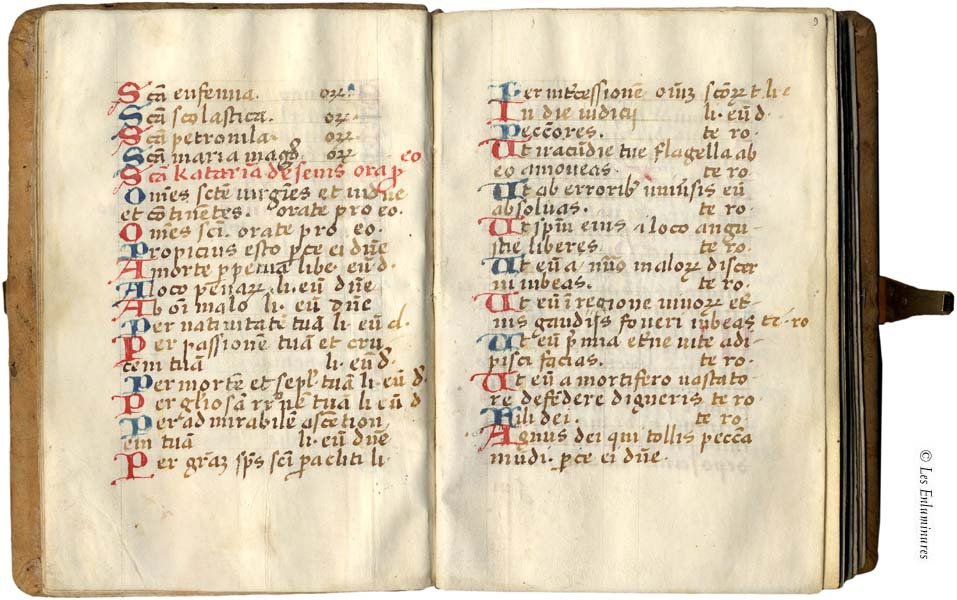 Scã eufemia. orȝ.
Scã scolastica. orȝ.
Scã petronila. orȝ.
Scã maria magđ orȝ. eo
Scã Kataria de senis ora p̱
Omẽs sctẽ virgĩes et vidue
et cõtinẽtes. orate pro eo.
Omẽs scĩ. orate pro eo.
Propicius esto p̱ce ei dũe
A morte p̱petua libe. eũ d.
A loco penarȝ. li. eũ dũe
Ab oĩ malo li. eũ dũe
Per nativitatẽ tuã li. eũ d.
Per passionẽ tuam et cru
cem tuã li. eũ đ.
Per mortẽ et sepl. tuã li. eũ đ.
Per gliosã rr̃ne tuã li. eũ d
Per admirabilẽ ascẽtion
em tuã li. eũ dũe.
Per graȝ sp̃s scĩ paᷓcliti li.
9
Per intᷓcessionẽ oĩuȝ sctõrȝ t. li. e
In die iudicij li. eũ d.
Peccõres. te ro.
Ut iracũdie tue flagella ab
eo amoveas. te ro.
Ut ab errorib' univsis eũ
absolvas. te ro.
Ut sp̃m eius a loco angu
stie liberes. te ro.
Ut eũ a nĩo malorȝ discri
ni iubeas. te ro.
Ut eũ ĩ regione vivorȝ et
nis gaudijs foveri iubeas te ro
Ut eũ p̱mia etne vite adi
pisci facias. te ro.
Ut eũ a mortifero vastato
re defẽdere digneris te ro.
Fili dei. te ro.
Agnus dei qui tollis pecca
mũdi. p̱ce ei dũe.
© Les Enluminures